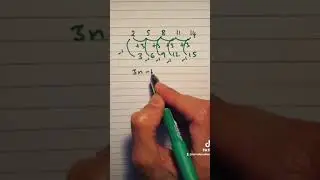 2 5 8 11 14
+3 +3 +3 +3
-1 3 -1 6 -1 9 -1 12 -1 15
3n -1